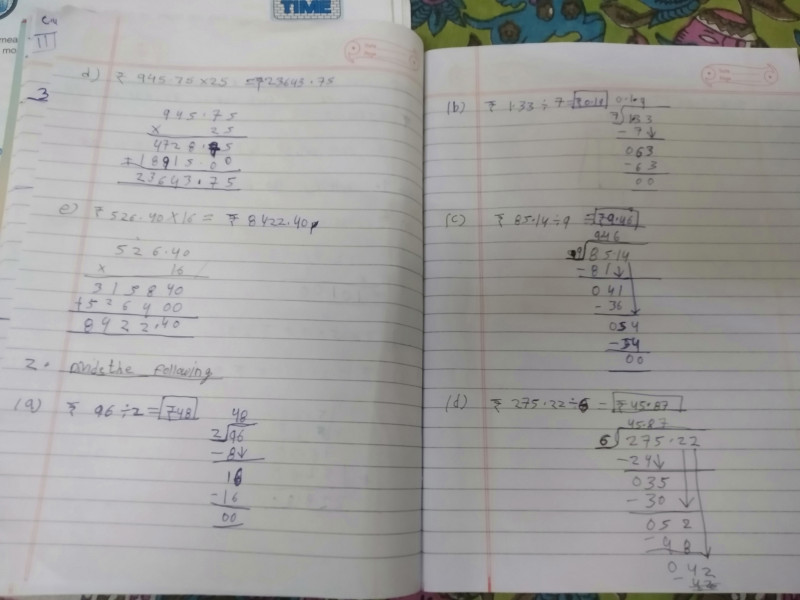 TIME
cw
III
3
d) ₹ 945.75 x 25 = 23643.75
945.75
x 25
4728.75
+18915.00
23643.75
e) ₹ 526.40 x 16 = ₹ 8422.40
526.40
x 16
315840
+526400
8422.40
2.
the following
(a) ₹ 96 ÷ 2 = ₹48
48
2)96
-8↓
16
-16
00
(b) ₹ 1.33 ÷ 7 = ₹0.19
0.19
7)133
-7↓
063
-63
00
(c) ₹ 85.14 ÷ 9 = ₹9.46
946
9)8514
-81↓
041
-36
054
-54
00
(d) ₹ 275.22 ÷ 6 = ₹45.87
45.87
6)275.22
-24↓
035
-30
052
-48
042
-42